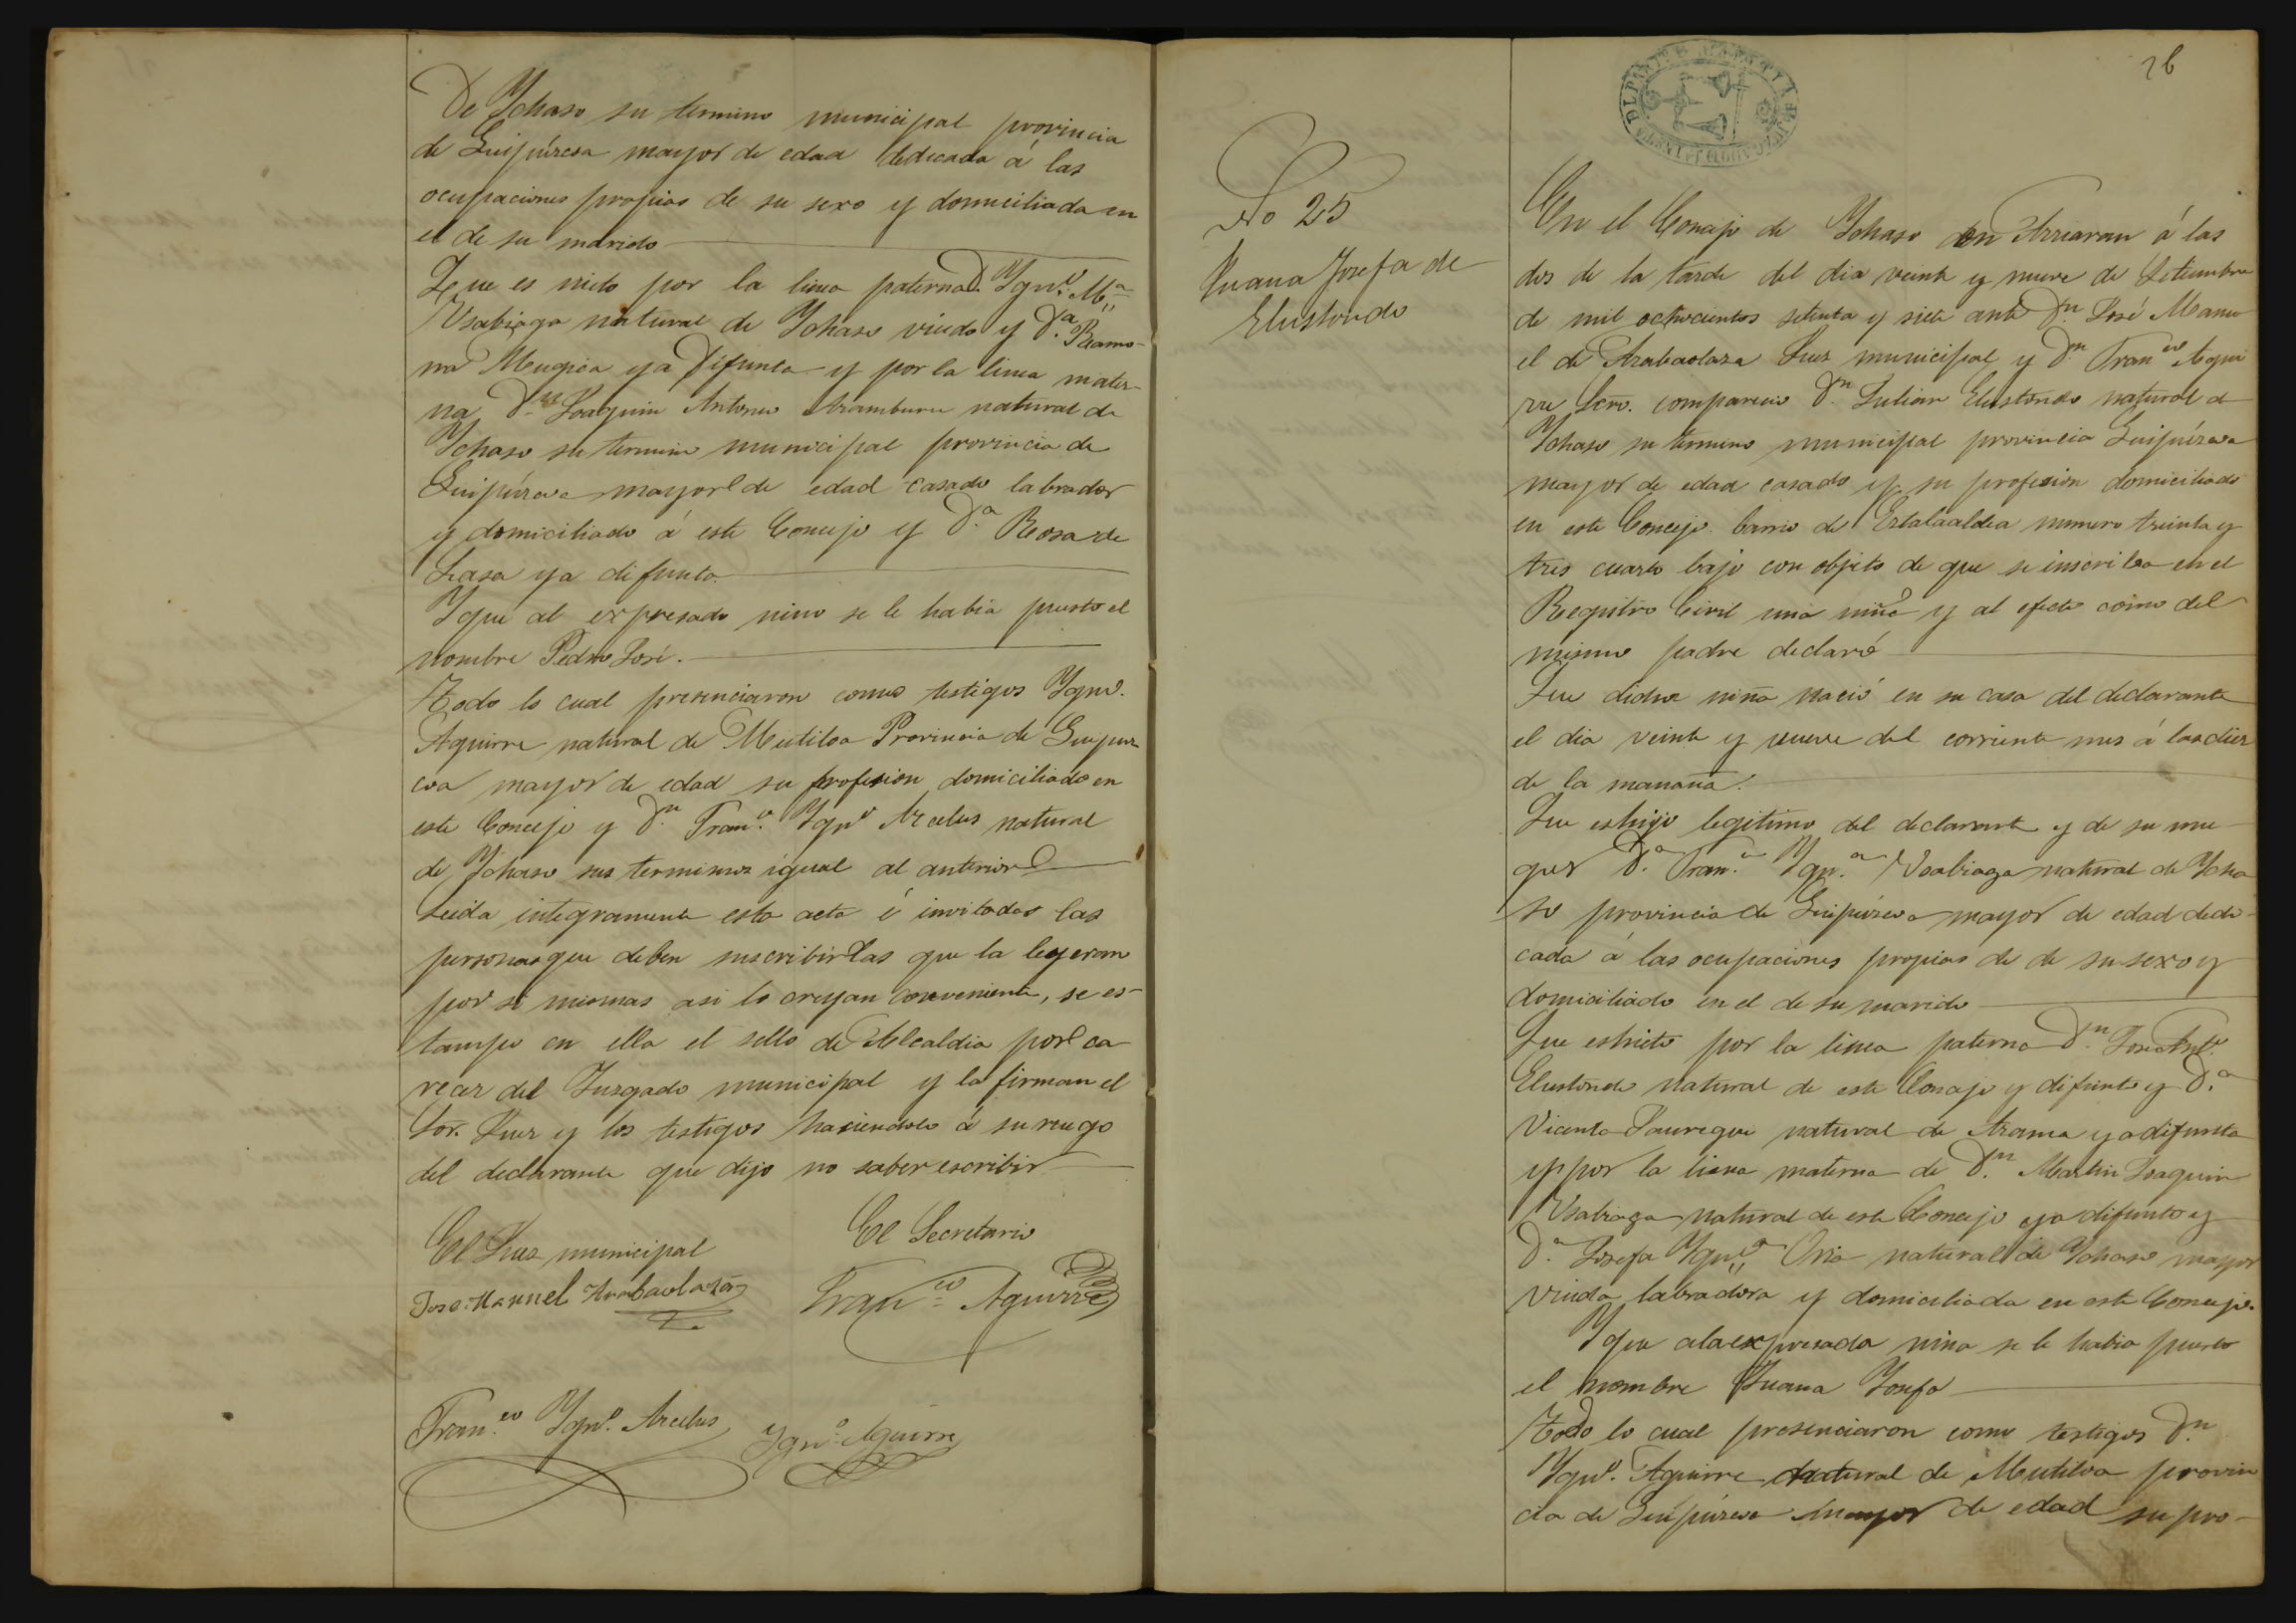 De Ychaso su termino municipal provincia
de Guipúzcoa mayor de edad dedicada á las
ocupaciones propias de su sexo y domiciliada en
el de su marido
Que es nieto por la linea paterna D. Ygnº. Mª
Usabiaga natural de Ychaso viudo y Dª. Ramo-
na Mugica ya difunta y por la linea mater-
na Dn Joaquin Antonio Aramburu natural de
Ychaso su termino municipal provincia de
Guipúzcoa mayor de edad casado labrador
y domiciliado á este Concejo y Dª Rosa de
Lasa ya difunta.
Y que al expresado nino se le habia puesto el
nombre Pedro José.
Todo lo cual presenciaron como testigos Ygnº.
Aguirre natural de Mutiloa Provincia de Guipuz
coa mayor de edad su profesion domiciliado en
este Concejo y Dn. Franº. Ygnº Arcelus natural
de Ychaso sus terminos igual al anterior
Leida integramente esta acta é invitadas las
personas que deben suscribirlas que la leyeran
por si mismas asi lo creyan conveniente, se es-
tampo en ella el sello de Alcaldia por ca
recer del Juzgado municipal y la firman el
Sor. Juez y los testigos haciendolo á su ruego
del declarante que dijo no saber escribir
El Juez municipal El Secretario
Jose Manuel Arabaolaza Franco Aguirre
Franco. Ygnº. Arcelus Ygnº. Aguirre
26
No 25
Juana Josefa de
Elustondo
En el Concejo de Ychaso en Arriaran á las
dos de la tarde del dia veinte y nueve de Setiembre
de mil ochocientos setenta y siete ante Dn. José Manu
el de Arabaolaza Juez municipal y Dn Franco Agui
rre Scro. comparecio Dn. Julian Elustondo natural d
Ychaso su termino municipal provincia Guipúzcoa
mayor de edad casado y su profesion domiciliado
en este Concejo barrio de numero treinta y
tres cuarto bajo con objeto de que se inscriba en el
Registro Civil una niña y al efecto como del
mismo padre declaró
Que dicha niña nació en su casa del declarante
el dia veinte y nueve del corriente mes á las diez
de la mañana.
Que es hijo legitimo del declarante y de su mu
ger Dª. Franª. Ygnª. Usabiaga natural de Ycha
so provincia de Guipúzcoa mayor de edad dedi-
cada á las ocupaciones propias de de su sexo y
domiciliado en el de su marido
Que es nieto por la linea paterna Dn. José Antº.
Elustondo natural de este Concejo y difunto y D.ª
Vicenta Jauregui natural de Arama ya difunta
y por la linea materna de Dn. Martin Joaquin
Usabiaga natural de este Concejo ya difunto y
Dª. Josefa Ygnª Oria natural de Ychaso mayor
viuda labradora y domiciliada en este Concejo.
Y que a la expresada nina se le habia puesto
el nombre Juana Josefa
Todo lo cual presenciaron como testigos Dn.
Ygnº. Aguirre natural de Mutiloa provin
cia de Guipúzcoa mayor de edad su pro-